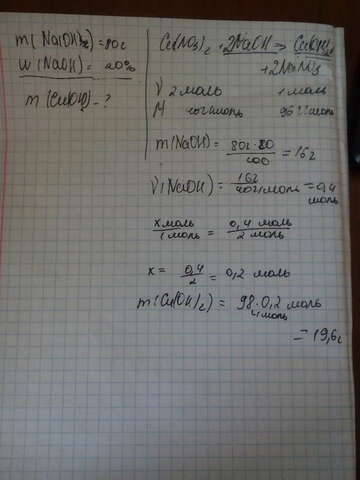 m(Na(OH)2)=80г
w(NaOH)=20%
m(Cu(OH)2-?
Cu(NO3)2+2NaOH=>Cu(OH)2
+2NaNO3
ν 2 моль 1 моль
M 40г/моль 98 г/моль
m(NaOH)= 80г·20/100 =16г
ν(NaOH)= 16г/40г/моль =0,4
моль
x моль/1 моль = 0,4 моль/2 моль
x= 0,4/2 =0,2 моль
m(Cu(OH)2)= 98·0,2 моль
г/моль
=19,6г